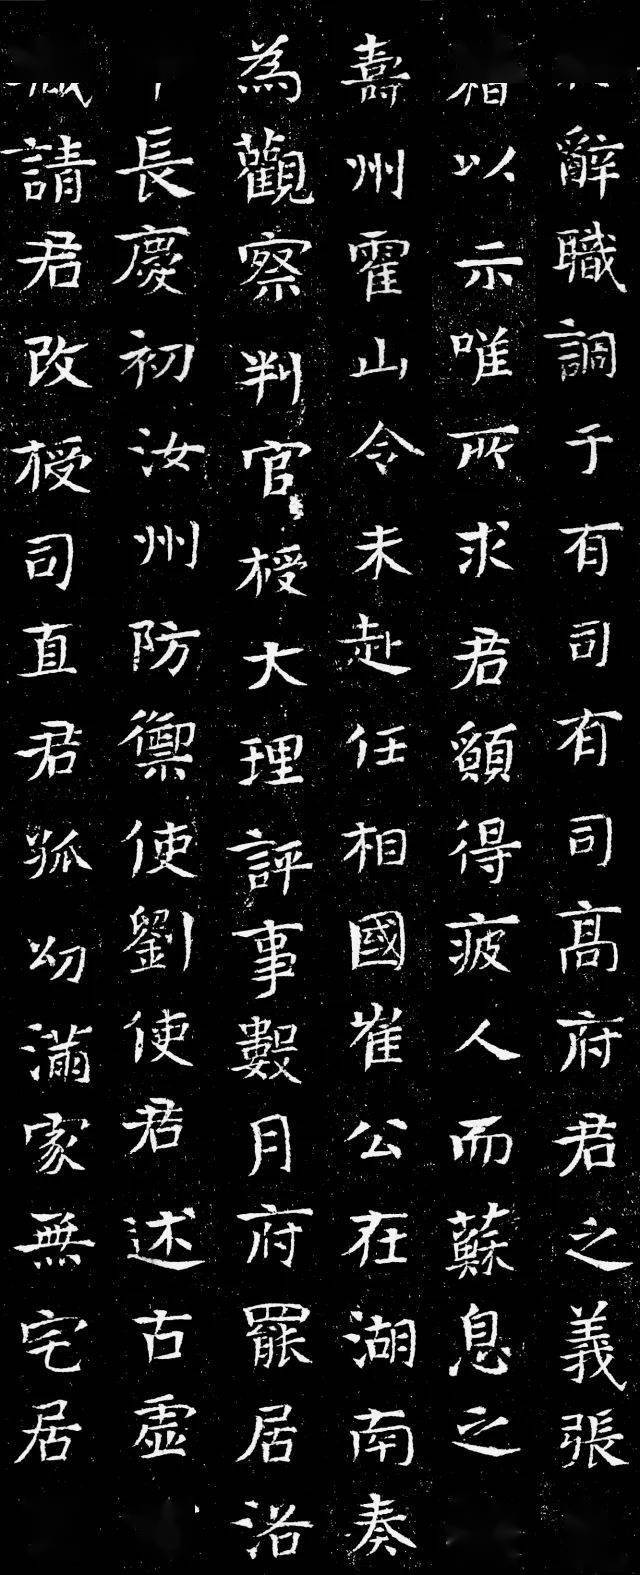 辭職調于有司有司髙府君之義張
以示唯所求君顧得疲人而蘇息之
壽州霍山令未赴任相國崔公在湖南奏
為觀察判官授大理評事數月府罷居洛
長慶初汝州防禦使劉使君述古虛
請君改授司直君孤幼滿家無宅居